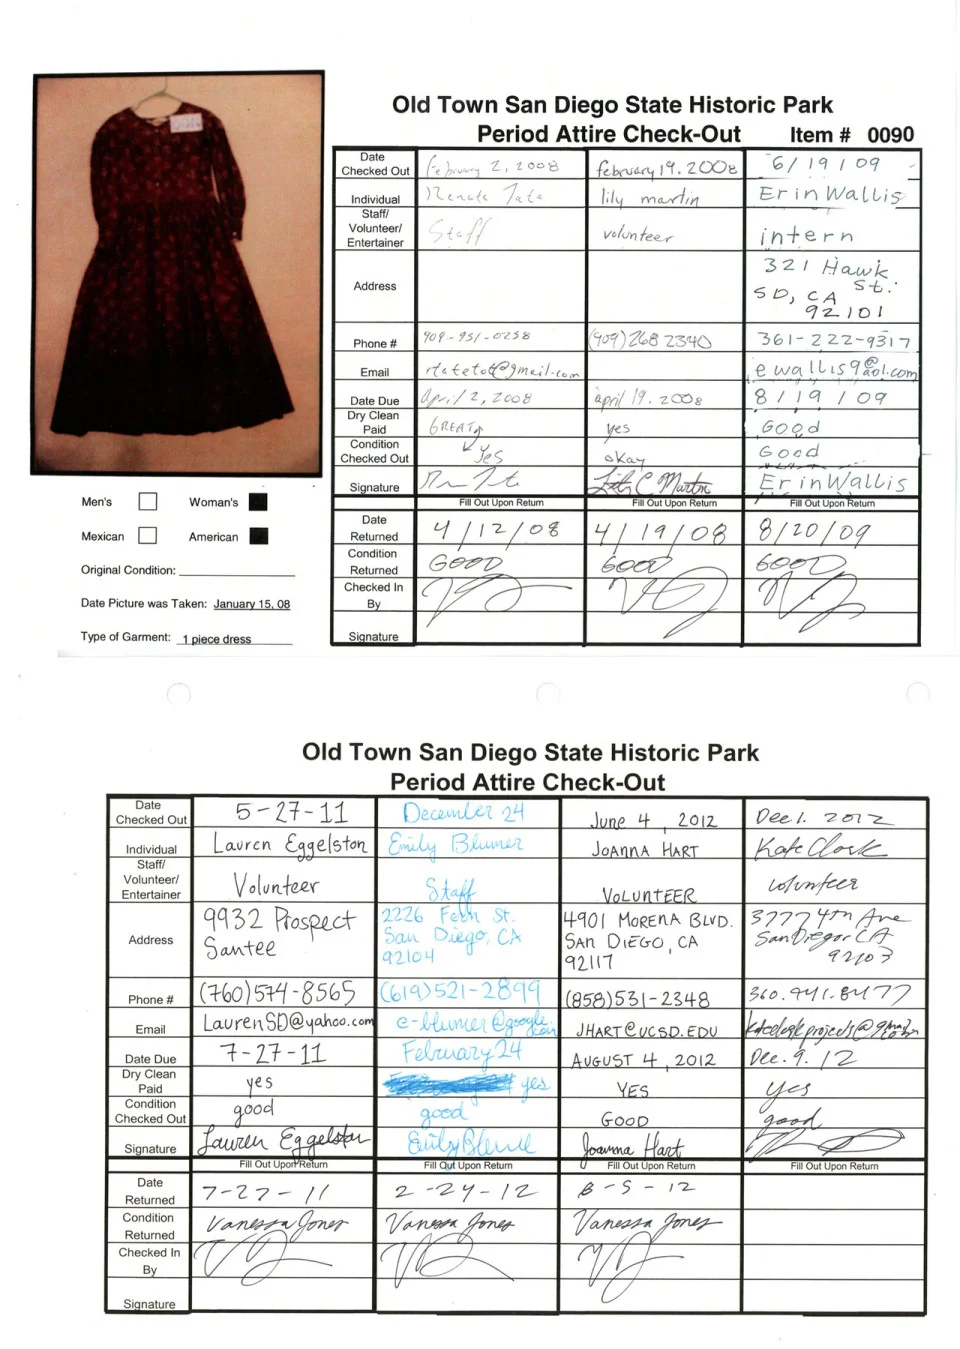 Old Town San Diego State Historic Park
Period Attire Check-Out Item # 0090
Date Checked Out February 2, 2008 february 19. 2008 6/19/09
Individual Renata Tate lily martin Erin Wallis
Staff/ Volunteer/ Entertainer Staff volunteer intern
Address 321 Hawk St. SD, CA 92101
Phone # 909-951-0258 (909) 268 2340 361-222-9317
Email rtatetot@gmail.com ewallis9@aol.com
Date Due April 2, 2008 april 19. 2008 8/19/09
Dry Clean Paid GREAT yes Good
Condition Checked Out Yes okay Good
Signature Lily C Martin Erin Wallis
Fill Out Upon Return Fill Out Upon Return Fill Out Upon Return
Date Returned 4/12/08 4/19/08 8/20/09
Condition Returned GOOD GOOD GOOD
Checked In By
Signature
Men's Woman's
Mexican American
Original Condition:
Date Picture was Taken: January 15, 08
Type of Garment: 1 piece dress
Old Town San Diego State Historic Park
Period Attire Check-Out
Date Checked Out 5-27-11 December 24 June 4, 2012 Dec 1. 2012
Individual Lauren Eggelston Emily Blumer JOANNA HART Kate Clark
Staff/ Volunteer/ Entertainer Volunteer Staff VOLUNTEER volunteer
Address 9932 Prospect Santee 2226 Fern St. San Diego, CA 92104 4901 MORENA BLVD. SAN DIEGO, CA 92117 3777 4th Ave San Diego CA 92103
Phone # (760)574-8565 (619)521-2899 (858)531-2348 360.941.8477
Email LaurenSD@yahoo.com e-blumer@google.com JHART@UCSD.EDU kateclarkprojects@gmail.com
Date Due 7-27-11 February 24 AUGUST 4, 2012 Dec. 9. 12
Dry Clean Paid yes yes YES yes
Condition Checked Out good good GOOD good
Signature Lauren Eggelston Joanna Hart
Fill Out Upon Return Fill Out Upon Return Fill Out Upon Return Fill Out Upon Return
Date Returned 7-27-11 2-24-12 8-5-12
Condition Returned Vanessa Jones Vanessa Jones Vanessa Jones
Checked In By
Signature